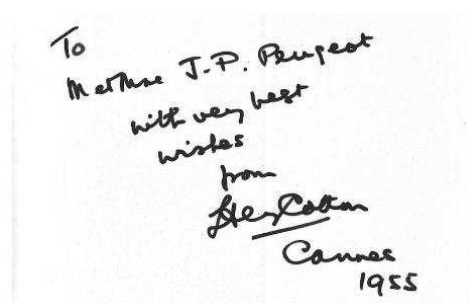 To
M et Mme J.P. Peugeot
with very best
wishes
from
Henry Cotton
Cannes
1955